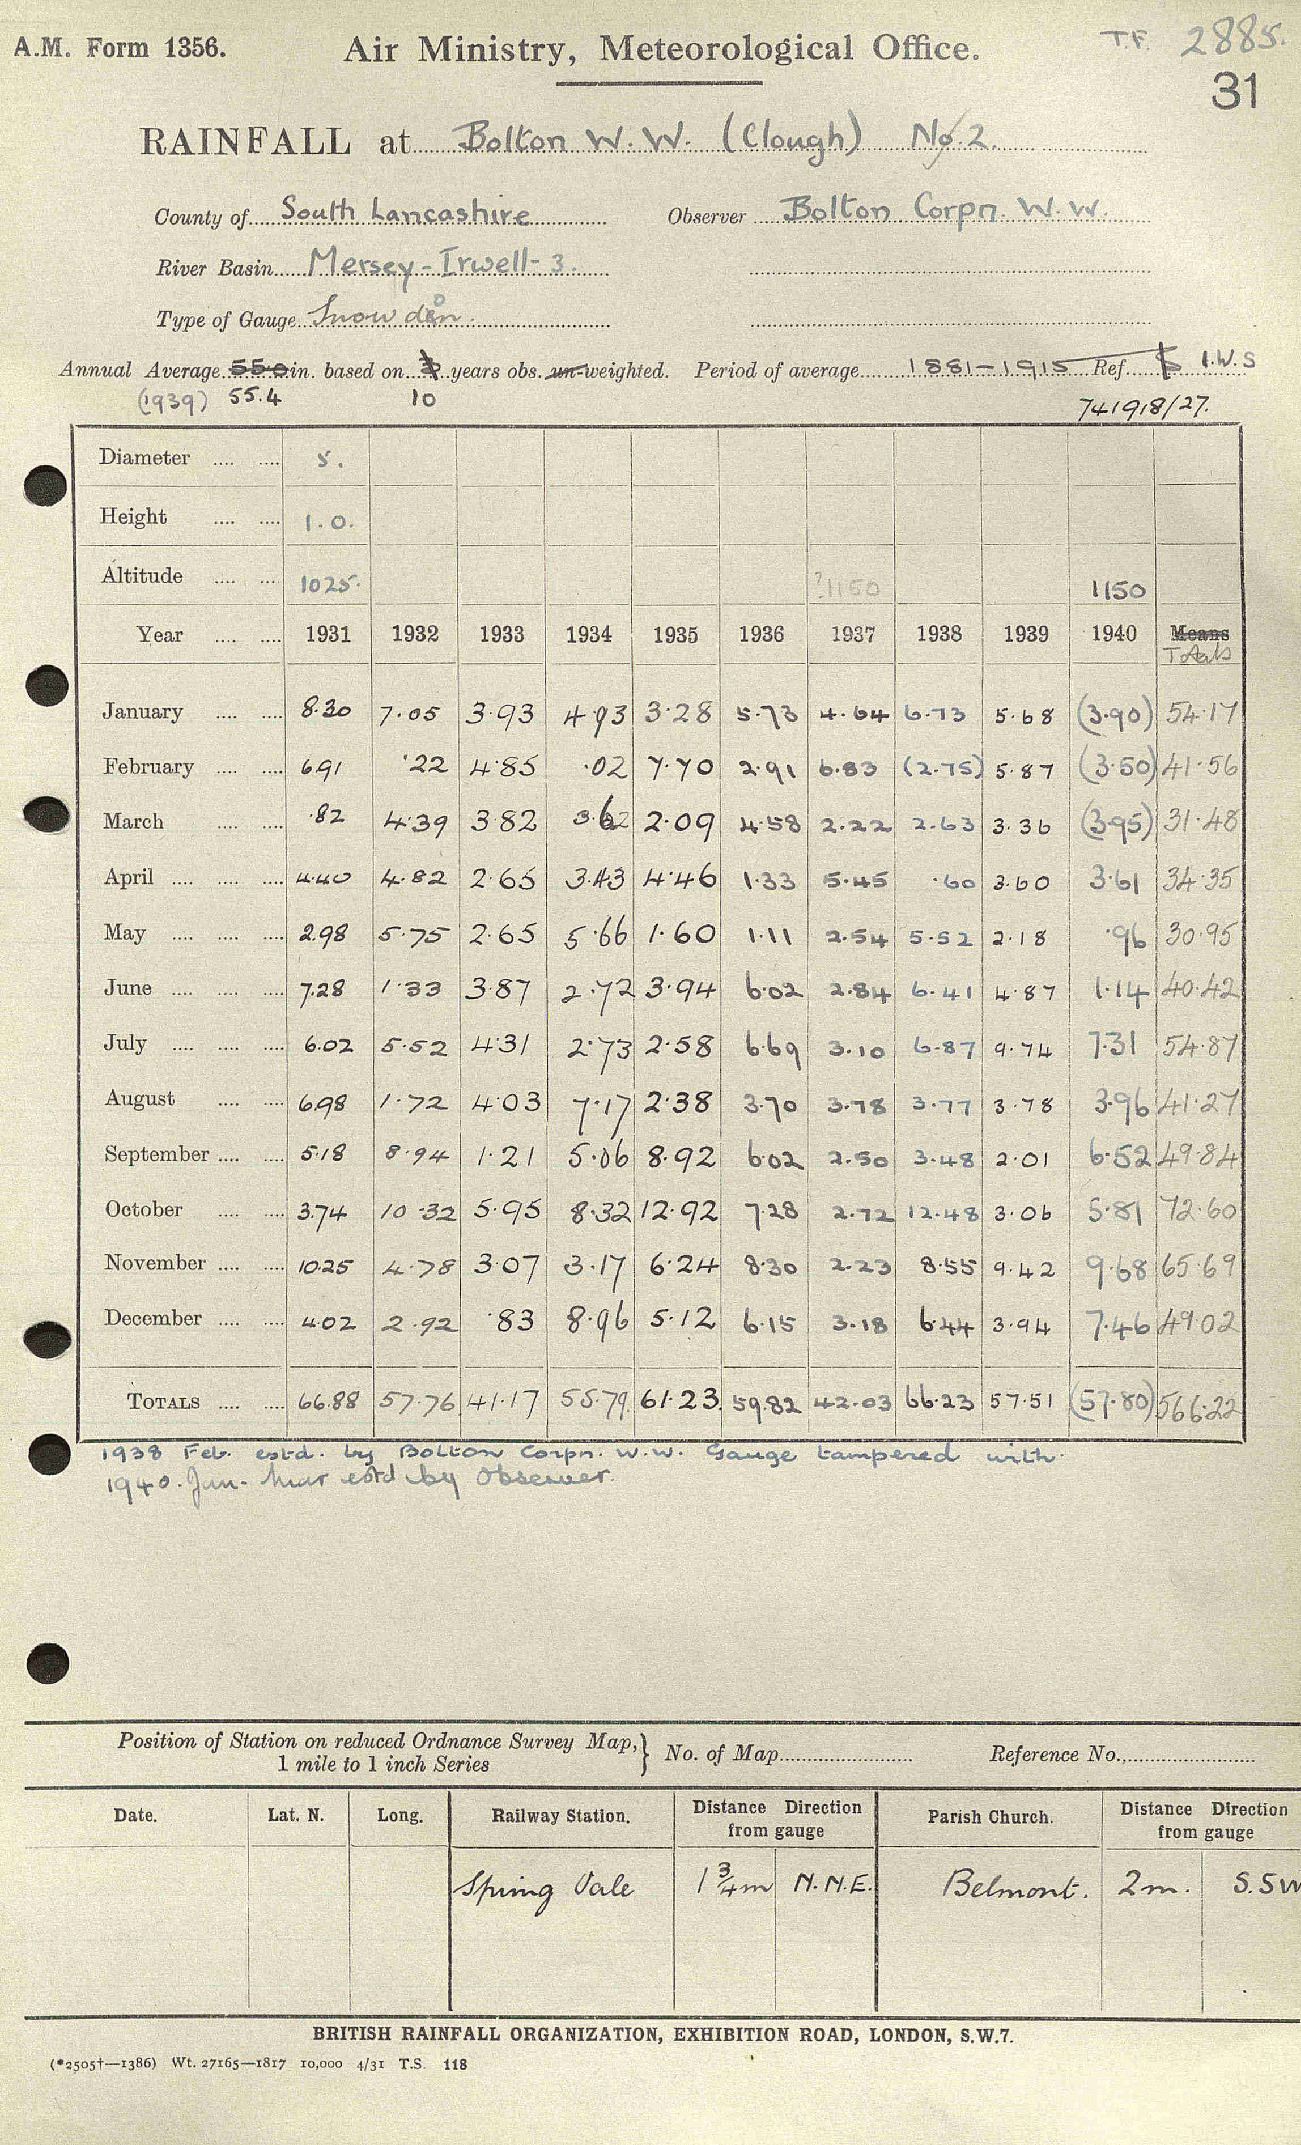 A.M. Form 1356. Air Ministry, Meteorological Office. T.F. 2885.
31
RAINFALL at Bolton W.W. (Clough) No. 2.
County of South Lancashire Observer Bolton Corpn. W.W.
River Basin Mersey - Irwell - 3.
Type of Gauge Snowdon
Annual Average 55.0 in. based on years obs. un-weighted. Period of average 1881-1915 Ref. I.W.S
(1939) 55.4 10 741918/27.
Diameter .... .... 5.
Height .... .... 1.0.
Altitude .... .... 1025. ?1150 1150
Year .... .... 1931 1932 1933 1934 1935 1936 1937 1938 1939 1940 Means
Totals
January .... .... 8.30 7.05 3.93 4.93 3.28 5.73 4.64 6.73 5.68 (3.90) 54.17
February .... .... 6.91 .22 4.85 .02 7.70 2.91 6.83 (2.75) 5.87 (3.50) 41.56
March .... .... .82 4.39 3.82 3.62 2.09 4.58 2.22 2.63 3.36 (3.95) 31.48
April .... .... .... 4.40 4.82 2.65 3.43 4.46 1.33 5.45 .60 3.60 3.61 34.35
May .... .... .... 2.98 5.75 2.65 5.66 1.60 1.11 2.54 5.52 2.18 .96 30.95
June .... .... .... 7.28 1.33 3.87 2.72 3.94 6.02 2.84 6.41 4.87 1.14 40.42
July .... .... .... 6.02 5.52 4.31 2.73 2.58 6.69 3.10 6.87 9.74 7.31 54.87
August .... .... 6.98 1.72 4.03 7.17 2.38 3.70 3.78 3.77 3.78 3.96 41.27
September .... .... 5.18 8.94 1.21 5.06 8.92 6.02 2.50 3.48 2.01 6.52 49.84
October .... .... 3.74 10.32 5.95 8.32 12.92 7.28 2.72 12.48 3.06 5.81 72.60
November .... .... 10.25 4.78 3.07 3.17 6.24 8.30 2.23 8.55 9.42 9.68 65.69
December .... .... 4.02 2.92 .83 8.96 5.12 6.15 3.18 6.44 3.94 7.46 49.02
TOTALS .... .... 66.88 57.76 41.17 55.79 61.23 59.82 42.03 66.23 57.51 (57.80) 566.22
1938 Feb. estd. by Bolton Corpn. W.W. Gauge tampered with.
1940. Jan- Mar estd by Observer.
Position of Station on reduced Ordnance Survey Map, } No. of Map Reference No.
1 mile to 1 inch Series
Date. Lat. N. Long. Railway Station. Distance Direction from gauge Parish Church. Distance Direction from gauge
Spring Vale 1 3/4 m N.N.E. Belmont. 2m. S.SW
BRITISH RAINFALL ORGANIZATION, EXHIBITION ROAD, LONDON, S.W.7.
(*2505†—1386) Wt. 27165—1817 10,000 4/31 T.S. 118